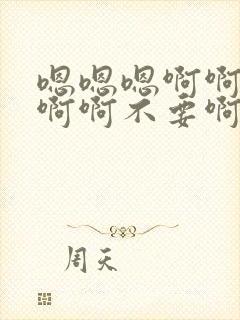 嗯嗯嗯啊啊
啊啊不要啊
周天